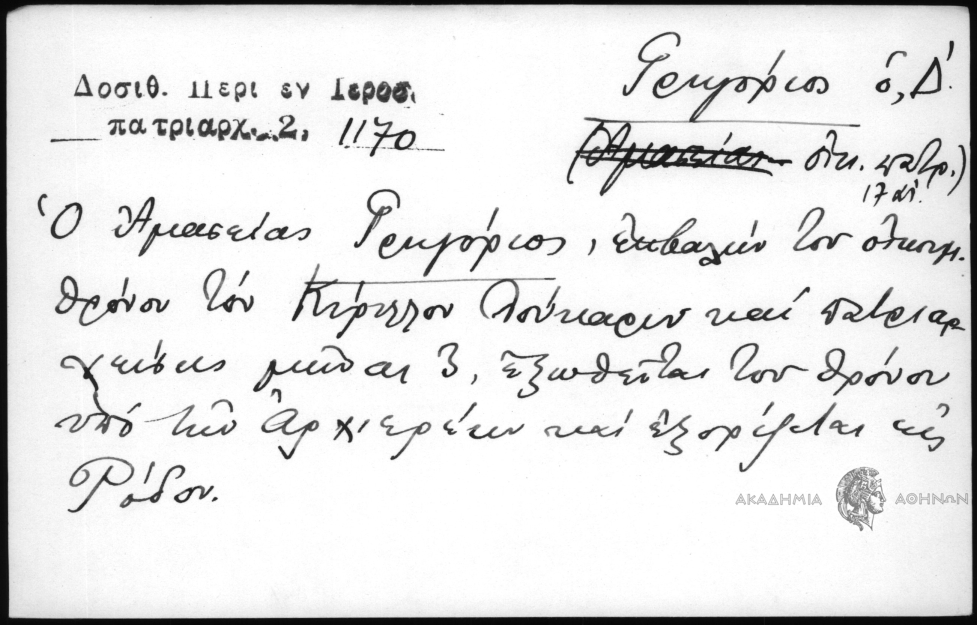 Δοσιθ. Περι εν Ιεροσ.
πατριαρχ. 2, 1170
Γρηγόριος ὁ, Δ΄.
(Ἀμασείας οἰκ. πατρ.)
17 αἰ.
Ὁ Ἀμασείας Γρηγόριος, ἐκβαλὼν τοῦ οἰκουμ.
θρόνου τὸν Κύριλλον Λούκαριν καὶ πατριαρ
χεύσας μῆνας 3, ἐξωθεῖται τοῦ θρόνου
ὑπὸ τῶν Ἀρχιερέων καὶ ἐξορίζεται εἰς
Ρόδον.
ΑΚΑΔΗΜΙΑ ΑΘΗΝΩΝ